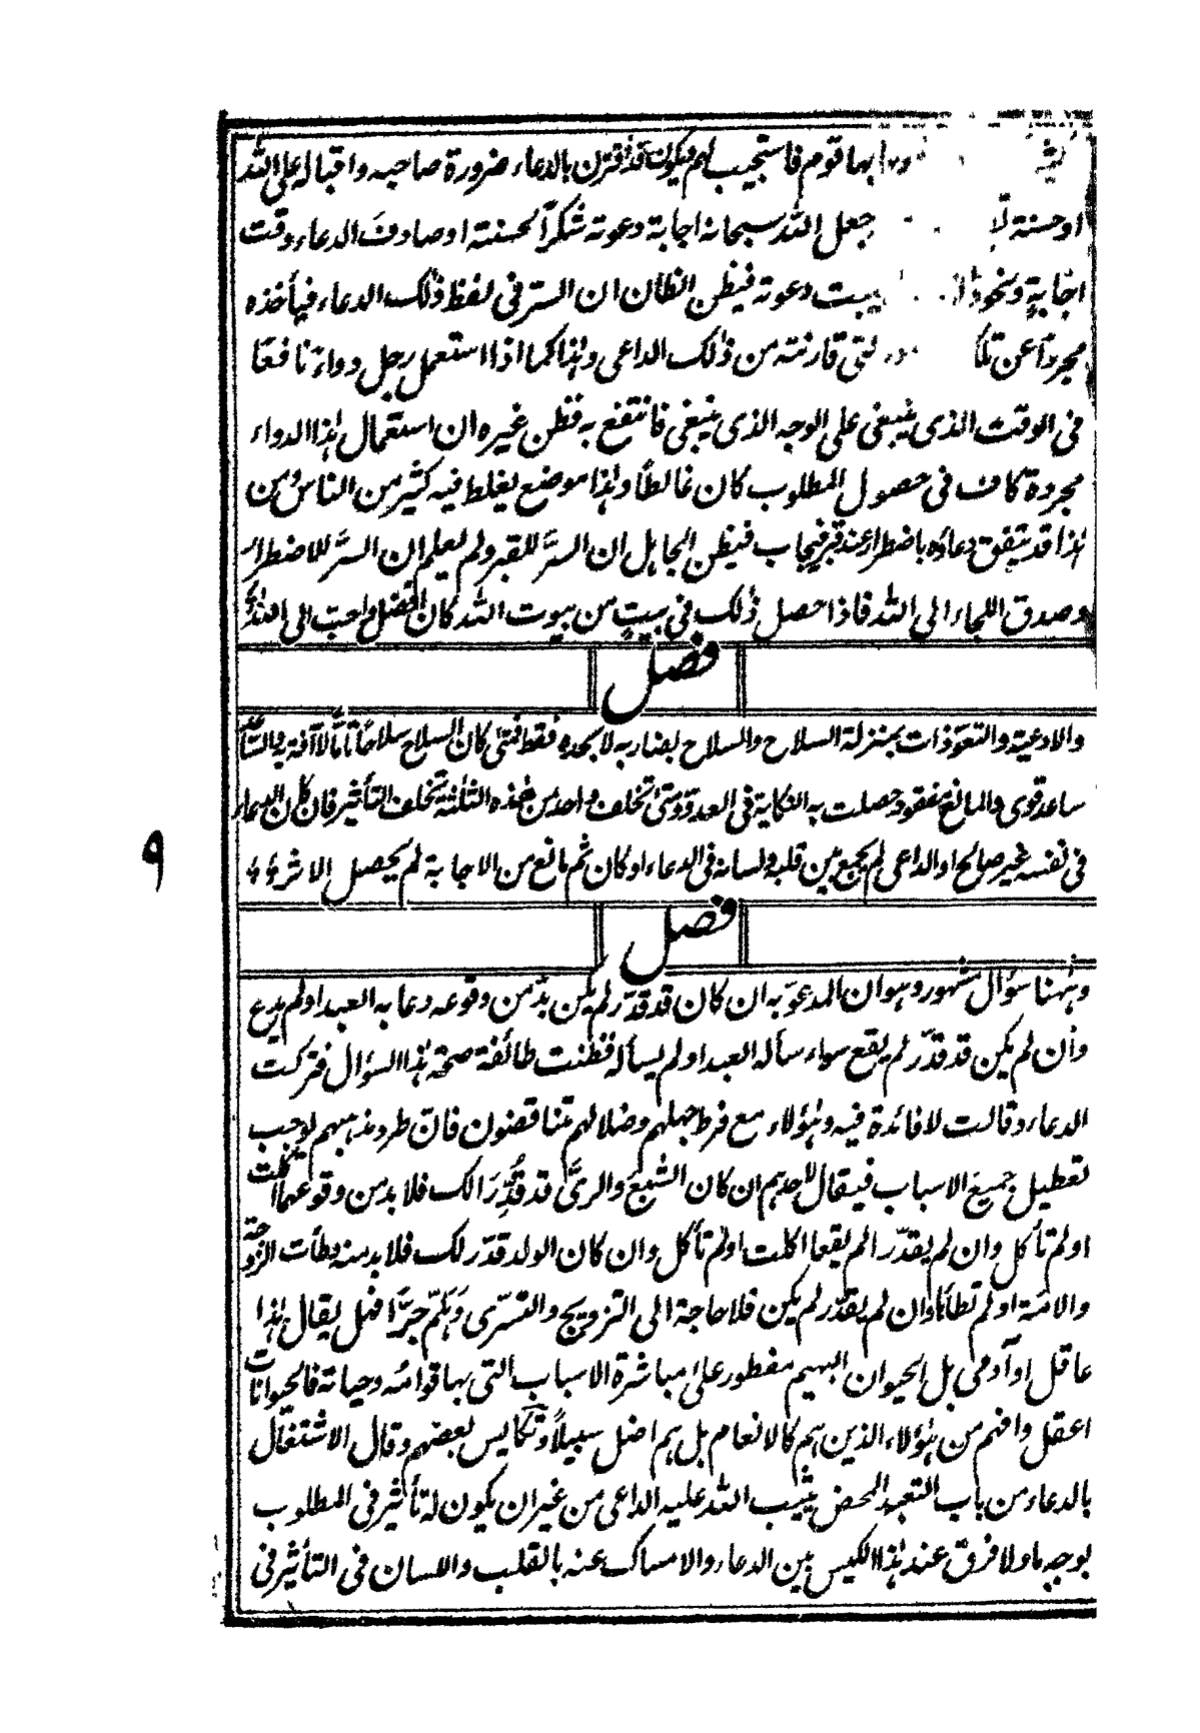 بها قوم فاستجيب لهم فيكون قد اقترن بالدعاء ضرورة صاحبه واقباله على الله
او حسنة جعل الله سبحانه اجابة دعوته شكراً لحسنته او صادف الدعاء وقت
اجابةٍ ونحو دعوته فيظن الظان ان السر فى لفظ ذلك الدعاء فيأخذه
مجرداً عن تلك التى قارنته من ذلك الداعى وهذا كما اذا استعمل رجل دواءً نافعاً
فى الوقت الذى ينبغى على الوجه الذى ينبغى فانتفع به فظن غيره ان استعمال هذا الدواء
مجردة كاف فى حصول المطلوب كان غالطاً وهذا موضع يغلط فيه كثير من الناس ومن
هذا قد يتفق دعاؤه باضطرار عند قبر فيجاب فيظن الجاهل ان السرَّ للقبر ولم يعلم ان السرَّ للاضطرار
وصدق اللجاء الى الله فاذا حصل ذلك فى بيتٍ من بيوت الله كان افضل واحب الى الله
فصل
والادعية والتعوذات بمنزلة السلاح والسلاح بضاربه لا بحده فقط فمتى كان السلاح سلاحاً تاماً لا آفة به والساعد
ساعد قوى والمانع مفقود حصلت به النكاية فى العدو ومتى تخلف واحد من هذه الثلثة تخلف التأثير فان كان الدعاء
فى نفسه غير صالح او الداعى لم يجمع بين قلبه ولسانه فى الدعاء او كان ثم مانع من الاجابة لم يحصل الاثر
٩
فصل
وههنا سؤال مشهور وهو ان المدعوّ به ان كان قد قدّر لم يكن بدّ من وقوعه دعا به العبد او لم يدع
وان لم يكن قد قدّر لم يقع سواء سأله العبد او لم يسأله فظنت طائفة صحة هذا السؤال فتركت
الدعاء وقالت لا فائدة فيه وهؤلاء مع فرط جهلهم وضلالهم متناقضون فانّ طرد مذهبهم يوجب
تعطيل جميع الاسباب فيقال لاحدهم ان كان الشبع والرىّ قد قُدِّرَا لك فلا بد من وقوعهما اكلت
او لم تأكل وان لم يقدّرا لم يقعا اكلت او لم تأكل وان كان الولد قدّر لك فلا بد منه وطأت الزوجة
والامة او لم تطأها وان لم يقدّر لم يكن فلا حاجة الى التزويج والتسرّى وهَلُمّ جرَّا فهل يقال هذا
عاقل او آدمى بل الحيوان البهيم مفطور على مباشرة الاسباب التى بها قوامه وحياته فالحيوانات
اعقل وافهم من هؤلاء الذين هم كالانعام بل هم اضل سبيلاً وتكايس بعضهم وقال الاشتغال
بالدعاء من باب التعبد المحض يثيب الله عليه الداعى من غير ان يكون له تأثير فى المطلوب
بوجهٍ ما ولا فرق عند هذا الكيس بين الدعاء والامساك عنه بالقلب واللسان فى التأثير فى